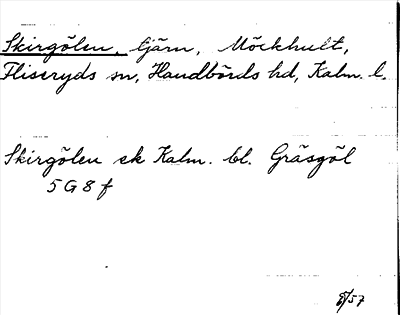 Skirgölen, tjärn, Möckhult,
Fliseryds sn, Handbörds hd, Kalm. l.
Skirgölen ek Kalm. bl. Gräsgöl
5 G 8 f
/57